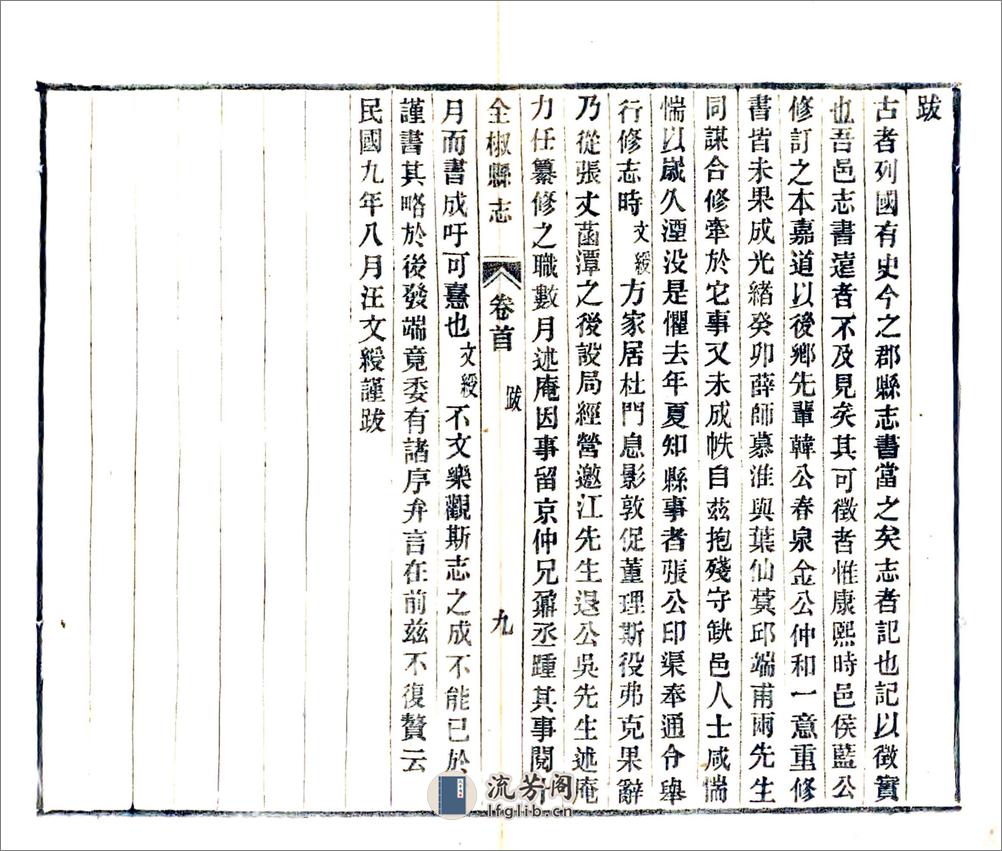 跋
古者列國有史今之郡縣志書當之矣志者記也記以徵實
也吾邑志書遠者不及見矣其可徵者惟康熙時邑侯藍公
修訂之本嘉道以後鄉先輩韓公春泉金公仲和一意重修
書皆未果成光緒癸卯薛師慕淮與葉仙蓂邱端甫兩先生
同謀合修牽於它事又未成帙自玆抱殘守缺邑人士咸惴
惴以歲久湮没是懼去年夏知縣事者張公印渠奉通令舉
行修志時文綬方家居杜門息影敦促董理斯役弗克果辭
乃從張丈菡潭之後設局經營邀江先生退公吳先生述庵
力任纂修之職數月述庵因事留京仲兄鼐丞踵其事閱
全椒縣志 卷首 跋 九
月而書成吁可憙也文綬不文樂觀斯志之成不能已於
謹書其略於後發端竟委有諸序弁言在前玆不復贅云
民國九年八月汪文綬謹跋
流芳阁
lfglib.cn